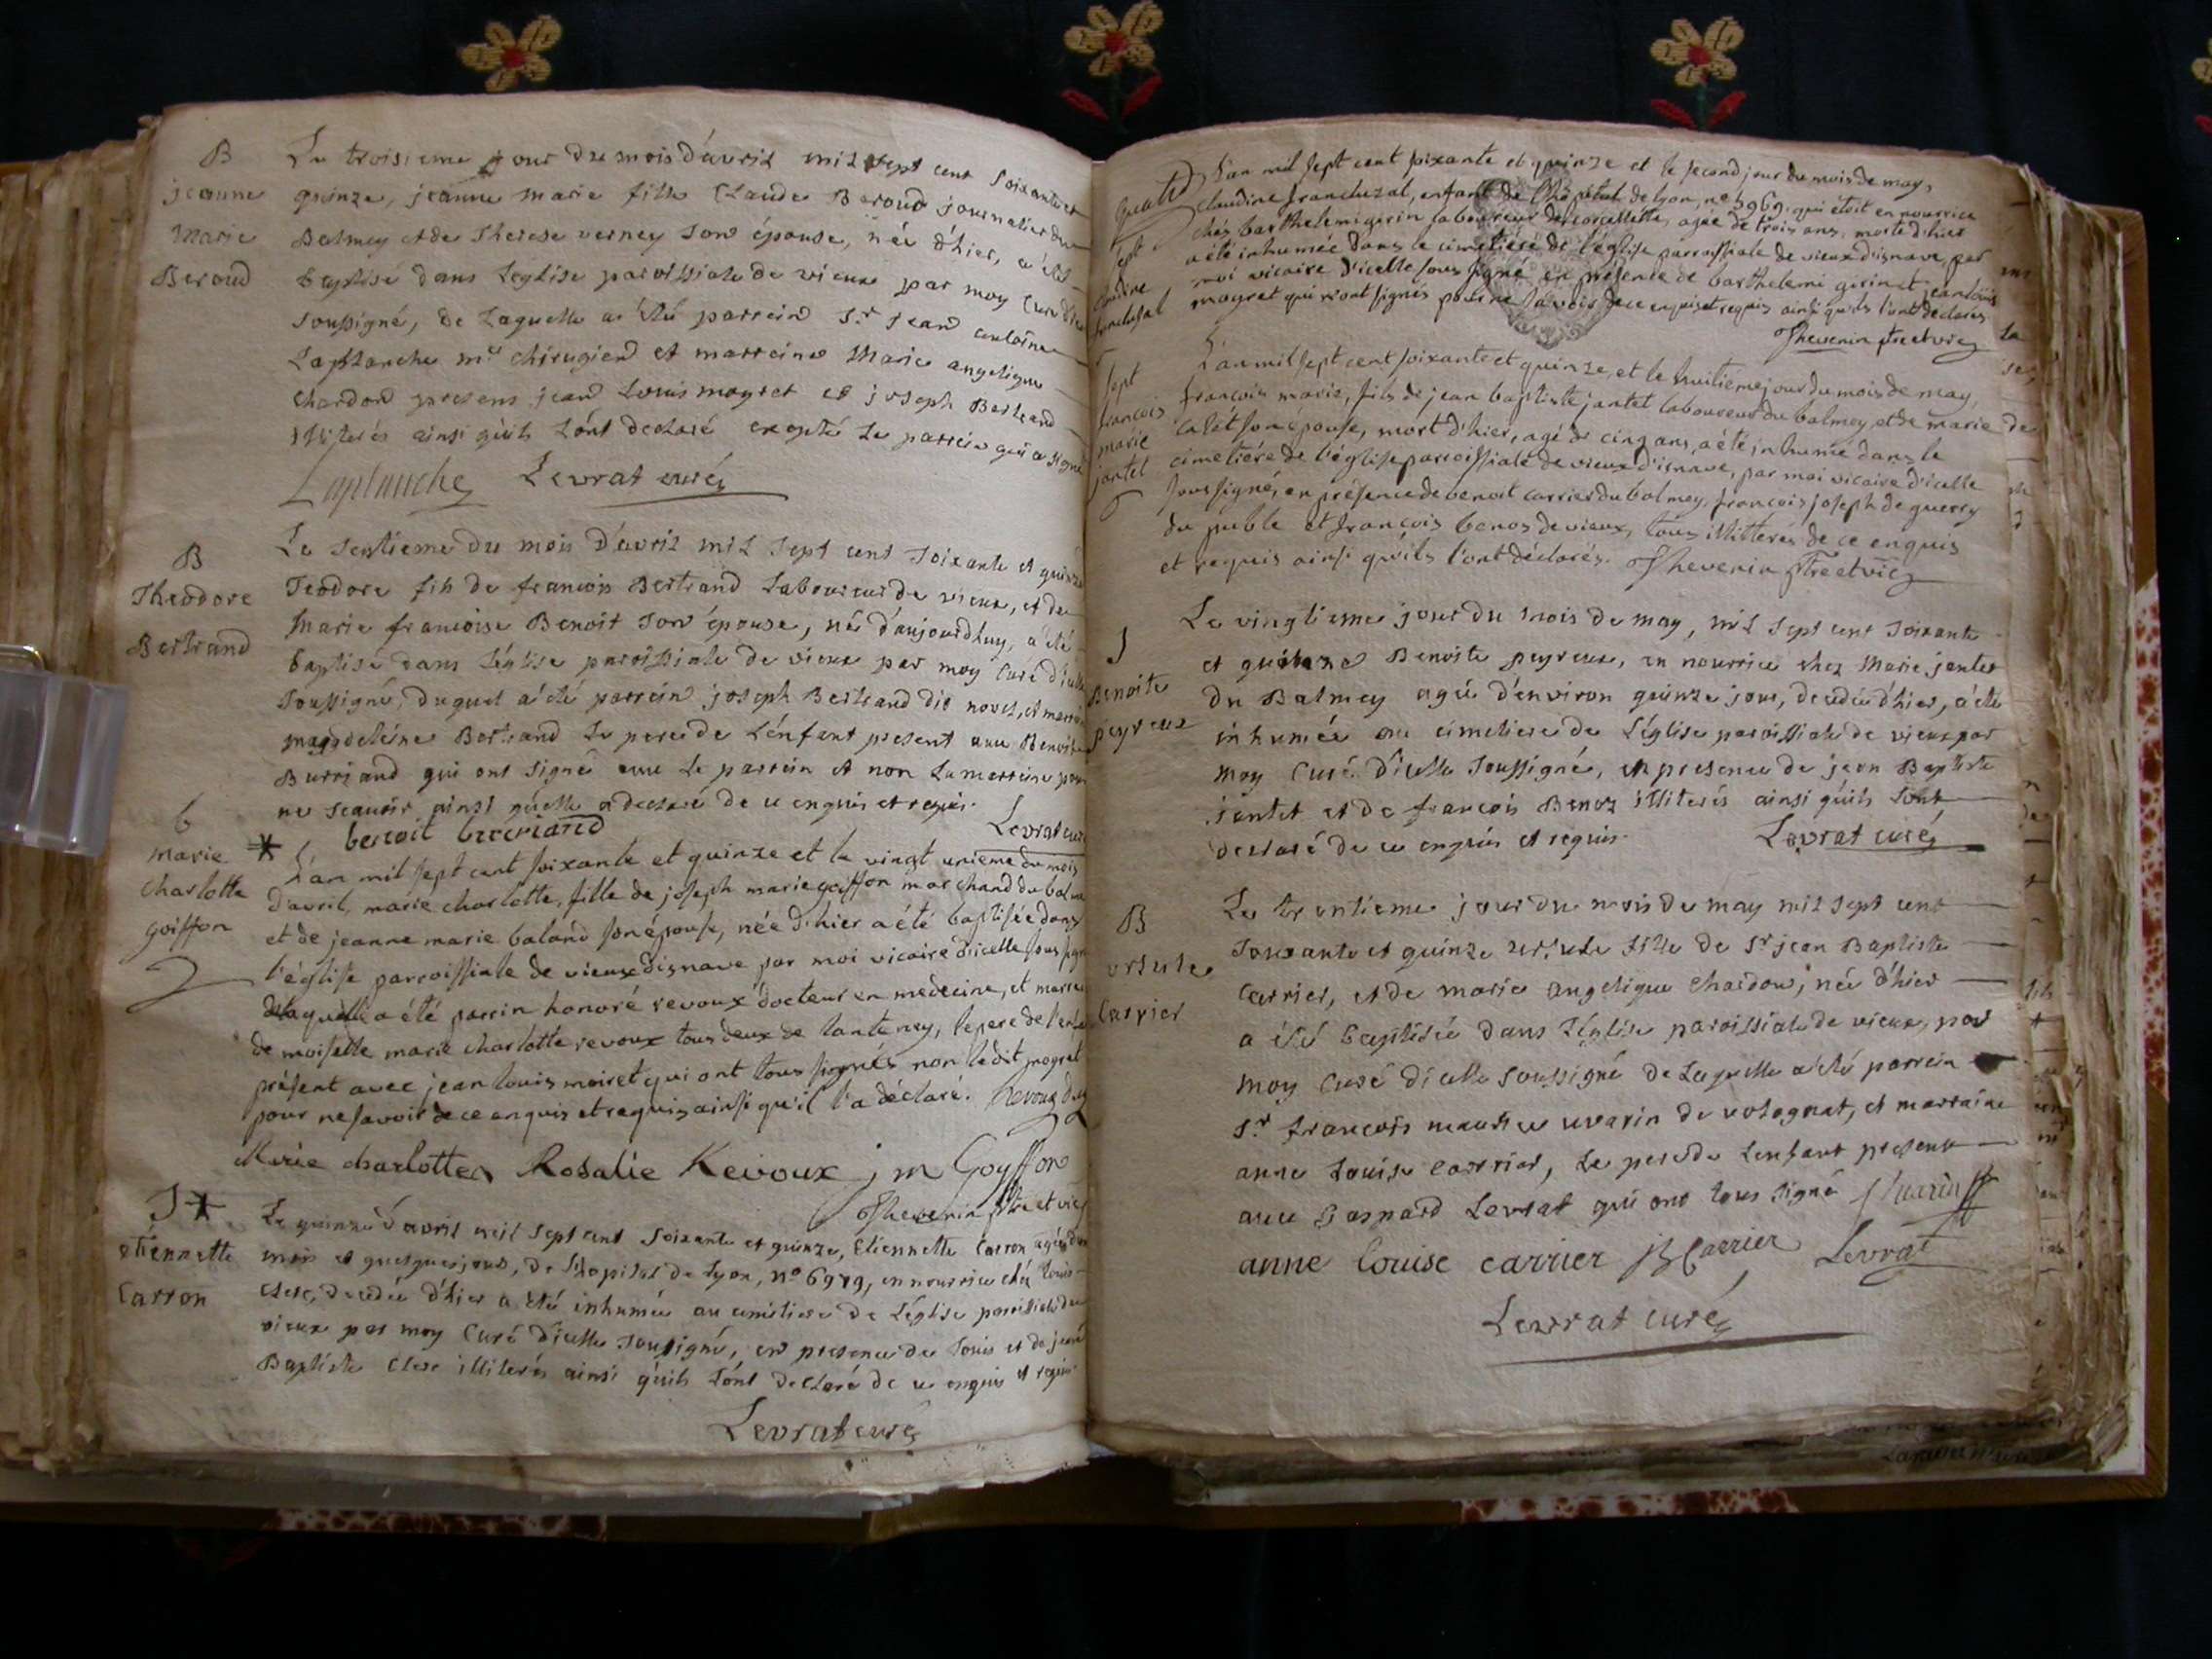 B
jeanne
Marie
Beroud
Le troisieme jour du mois d'avril mil sept cent soixante et
quinze, jeanne marie fille Claude Beroud journalier du
Balmey et de Therese verney son épouse, née d'hier, a été
baptisé dans l'eglise paroissiale de vieux par moy Curé
soussigné, de laquelle a été parrein Sr jean antoine
Laplanche me chirugien et marreine Marie angelique
chardon presens jean Louis mayret et joseph Bertrand
illiterés ainsi qu'ils l'ont declaré excepté le parrein qui a signé
Laplanche Levrat curé
B
Theodore
Bertrand
Le septieme du mois d'avril mil sept cent soixante et quinze
Teodore fils de francois Bertrand Laboureur de vieux, et de
Marie francoise Benoit son épouse, né d'aujourdhuy, a été
baptisé dans l'église paroissiale de vieux par moy Curé d'icelle
soussigné, duquel a été parrein joseph Bertrand dit novel, et marreine
magdeleine Bertrand le pere de l'énfant present avec Benoit
Burriand qui ont signé avec le parrein et non la marreine pour
ne scauoir ainsi qu'elle a declaré de ce enquis et requis.
benoit Levrat curé
b
marie
charlotte
goiffon
L'an mil sept cent soixante et quinze et le vingt unieme du mois
d'avril, marie charlotte, fille de joseph marie goiffon marchand du balmey
et de jeanne marie baland son épouse, née d'hier a été baptisée dans
l'église parroissiale de vieux d'isnave par moi vicaire d'icelle sous signé
de laquelle a été parrin honoré revoux docteur en medecine, et marreine
demoiselle marie charlotte revoux tous deux de lantenay, le pere de l'enfant
présent avec jean louis moiret qui ont tous signés non ledit mayret
pour ne savoir de ce enquis et requis ainsi qu'il l'a déclaré. Revoux
Marie charlotte Rosalie Revoux j m Goyffon
Thevenin ptre et vic
J
étiennette
Carron
Le quinze d'avril mil sept cent soixante et quinze, Etiennette Carron agée d'un
mois et quelques jours, de l'hopital de Lyon, no 6979, en nourrice chez Louis
Clerc, decedée d'hier a été inhumée au cimetiere de l'église paroissiale de
vieux par moy Curé d'icelle soussigné, en presence de Louis et de jean
Baptiste Clerc illiterés ainsi qu'ils l'ont declaré de ce enquis et requis.
Levrat curé
Sept
claudine
francluzal
L'an mil sept cent soixante et quinze et le second jour du mois de may,
claudine francluzal, enfant de l'hôpital de lyon, no 5969. qui étoit en nourrice
chés barthelemi girin laboureur de corcellette, agée de trois ans, morte d'hier
a été inhumée dans le cimetière de l'église parroissiale de vieux d'isnave, par
moi vicaire d'icelle sous signé en présence de barthelemi girin et jean loüis
mayret qui n'ont signés pour ne savoir de ce enquis et requis ainsi qu'ils l'ont déclarés.
Thevenin ptre et vic
sept
francois
marie
jantet
L'an mil sept cent soixante et quinze, et le huitieme jour du mois de may,
françois marie, fils de jean baptiste jantet laboureur du balmey, et de marie
son épouse, mort d'hier, agé de cinq ans, a été inhumé dans le
cimetière de l'église parroissiale de vieux d'isnave, par moi vicaire d'icelle
sous signé, en présence de benoit carrier du balmey, françois joseph de guerry
du puble et françois benos de vieux, tous illitterés de ce enquis
et requis ainsi qu'ils l'ont déclarés. Thevenin ptre et vic
J
Benoite
peyreux
Le vingtieme jour du mois de may, mil sept cent soixante
et quinze Benoite peyreux, en nourrice chez Marie jantet
du Balmey agée d'environ quinze jour, decedée d'hier, a été
inhumée au cimetiere de l'église paroissiale de vieux par
moy Curé d'icelle soussigné, en presence de jean Baptiste
jantet et de francois Benoz illiterés ainsi qu'ils l'ont
declaré de ce enquis et requis. Levrat curé
B
ursule
Carrier
Le trentieme jour du mois de may mil sept cent
soixante et quinze ursule fille de Sr jean Baptiste
Carrier, et de marie angelique chardon, née d'hier
a été baptisée dans l'église paroissiale de vieux, par
moy Curé d'icelle soussigné de laquelle a été parrein
Sr francois maurice de volognat, et marraine
anne Louise carrier, le pere de l'enfant present
avec Gaspard Levrat qui ont tous signé
anne louise carrier JB Carrier Levrat
Levrat curé